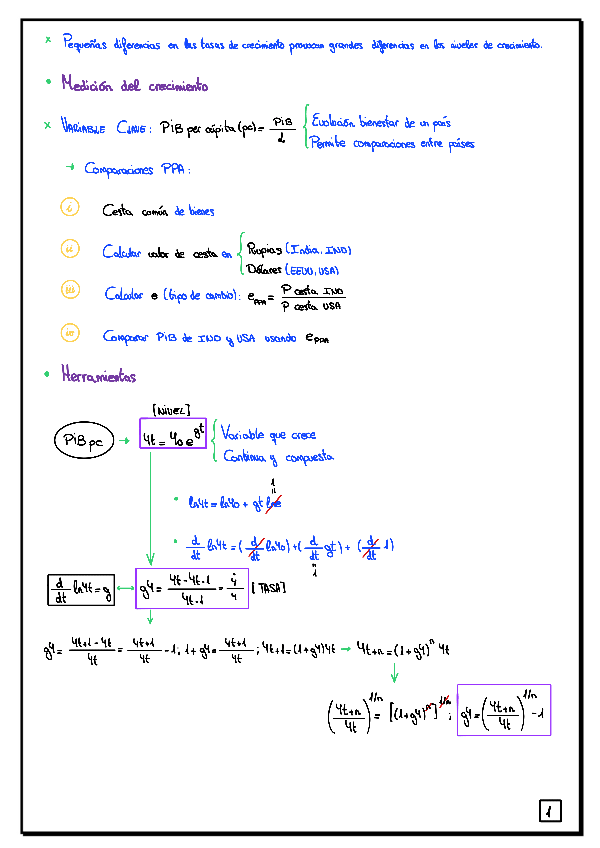 × Pequeñas diferencias en las tasas de crecimiento provocan grandes diferencias en los niveles de crecimiento.
• Medición del crecimiento
× VARIABLE CLAVE: PiB per cápita (pc) = PiB / L { Evolución bienestar de un país
Permite comparaciones entre países
→ Comparaciones PPA:
i Cesta común de bienes
ii Calcular valor de cesta en { Rupias (India, IND)
Dólares (EEUU, USA)
iii Calcular e (tipo de cambio): e_PPA = P cesta IND / P cesta USA
iv Comparar PiB de IND y USA usando e_PPA
• Herramientas
[NIVEL]
PiB pc → Yt = Y0 e^gt { Variable que crece
Continua y compuesta
1
"
• lnYt = lnY0 + gt lne
• d/dt lnYt = (d/dt lnY0) + (d/dt gt) + (d/dt 1)
"
1
d/dt lnYt = g ↔ gY = Yt - Yt-1 / Yt-1 = Ẏ/Y [TASA]
gY = Yt+1 - Yt / Yt = Yt+1 / Yt - 1; 1 + gY = Yt+1 / Yt ; Yt+1 = (1+gY)Yt → Yt+n = (1+gY)^n Yt
(Yt+n / Yt)^1/n = [(1+gY)^n]^1/n ; gY = (Yt+n / Yt)^1/n - 1
1